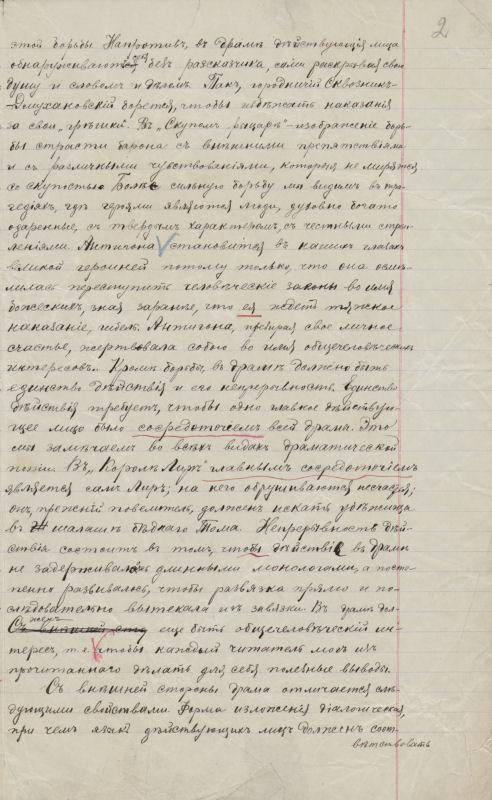 2
этой борьбы. Напротивъ, въ драмѣ дѣйствующія лица
обнаруживаютъ безъ разсказчика, сами раскрывая свою
душу и словомъ и дѣломъ. Такъ, городничій Сквозникъ-
Дмухановскій борется, чтобы избѣжать наказанія
за свои „грѣшки“. Въ „Скупомъ рыцарѣ“ – изображеніе борь-
бы страсти барона съ внѣшними препятствіями
и съ различными чувствованіями, которыя не мирятся
со скупостью. Болѣе сильную борьбу мы видимъ въ тра-
гедіяхъ, гдѣ героями являются люди, духовно богато
одаренные, съ твердымъ характеромъ, съ честными стрем-
леніями. Антигона становится въ нашихъ глазахъ
великой героиней потому только, что она осмѣ-
лилась переступить человѣческіе законы во имя
божескихъ, зная заранѣе, что ея ждетъ тяжкое
наказаніе, гибель. Антигона, презирая свое личное
счастье, жертвовала собою во имя общечеловѣческихъ
интересовъ. Кромѣ борьбы, въ драмѣ должно быть
единство дѣйствія и его непрерывность. Единство
дѣйствія требуетъ, чтобы одно главное дѣйствую-
щее лицо было сосредоточіемъ всей драмы. Это
мы замѣчаемъ во всѣхъ видахъ драматической
поэзіи. Въ „Королѣ Лирѣ“ главнымъ сосредоточіемъ
является самъ Лиръ; на него обрушиваются несчастья;
онъ, прежній повелитель, долженъ искать убѣжища
въ шалашѣ бѣднаго Тома. Непрерывность дѣй-
ствія состоитъ въ томъ, чтобы дѣйствіе въ драмѣ
не задерживалось длинными монологами, а посте-
пенно развивалось, чтобы развязка прямо и по-
слѣдовательно вытекала изъ завязки. Въ драмѣ дол-
женъ еще быть общечеловѣческій ин-
тересъ, т.е. чтобы каждый читатель могъ изъ
прочитаннаго дѣлать для себя полезные выводы.
Съ внѣшней стороны драма отличается слѣ-
дующими свойствами. Форма изложенія діалогическая,
при чемъ языкъ дѣйствующихъ лицъ долженъ соот-
вѣтствовать